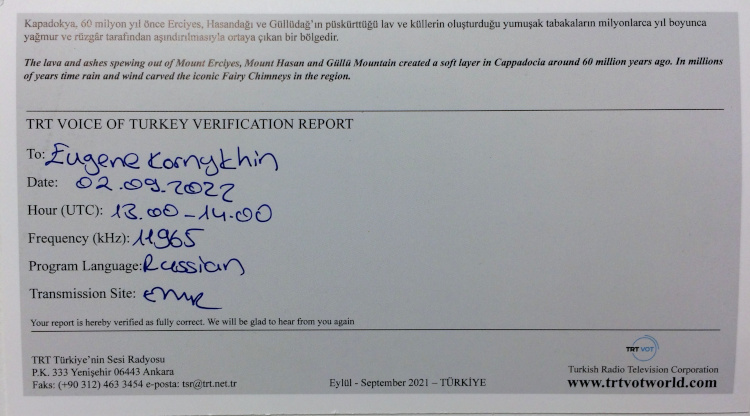 Kapadokya, 60 milyon yıl önce Erciyes, Hasandağı ve Güllüdağ'ın püskürttüğü lav ve küllerin oluşturduğu yumuşak tabakaların milyonlarca yıl boyunca
yağmur ve rüzgâr tarafından aşındırılmasıyla ortaya çıkan bir bölgedir.
The lava and ashes spewing out of Mount Erciyes, Mount Hasan and Güllü Mountain created a soft layer in Cappadocia around 60 million years ago. In millions
of years time rain and wind carved the iconic Fairy Chimneys in the region.
TRT VOICE OF TURKEY VERIFICATION REPORT
To: Eugene Kornykhin
Date: 02.09.2022
Hour (UTC): 13.00-14.00
Frequency (kHz): 11965
Program Language: Russian
Transmission Site: emr
Your report is hereby verified as fully correct. We will be glad to hear from you again
TRT Türkiye'nin Sesi Radyosu
P.K. 333 Yenişehir 06443 Ankara
Faks: (+90 312) 463 3454 e-posta: tsr@trt.net.tr
Eylül - September 2021 – TÜRKİYE
TRT VOT
Turkish Radio Television Corporation
www.trtvotworld.com